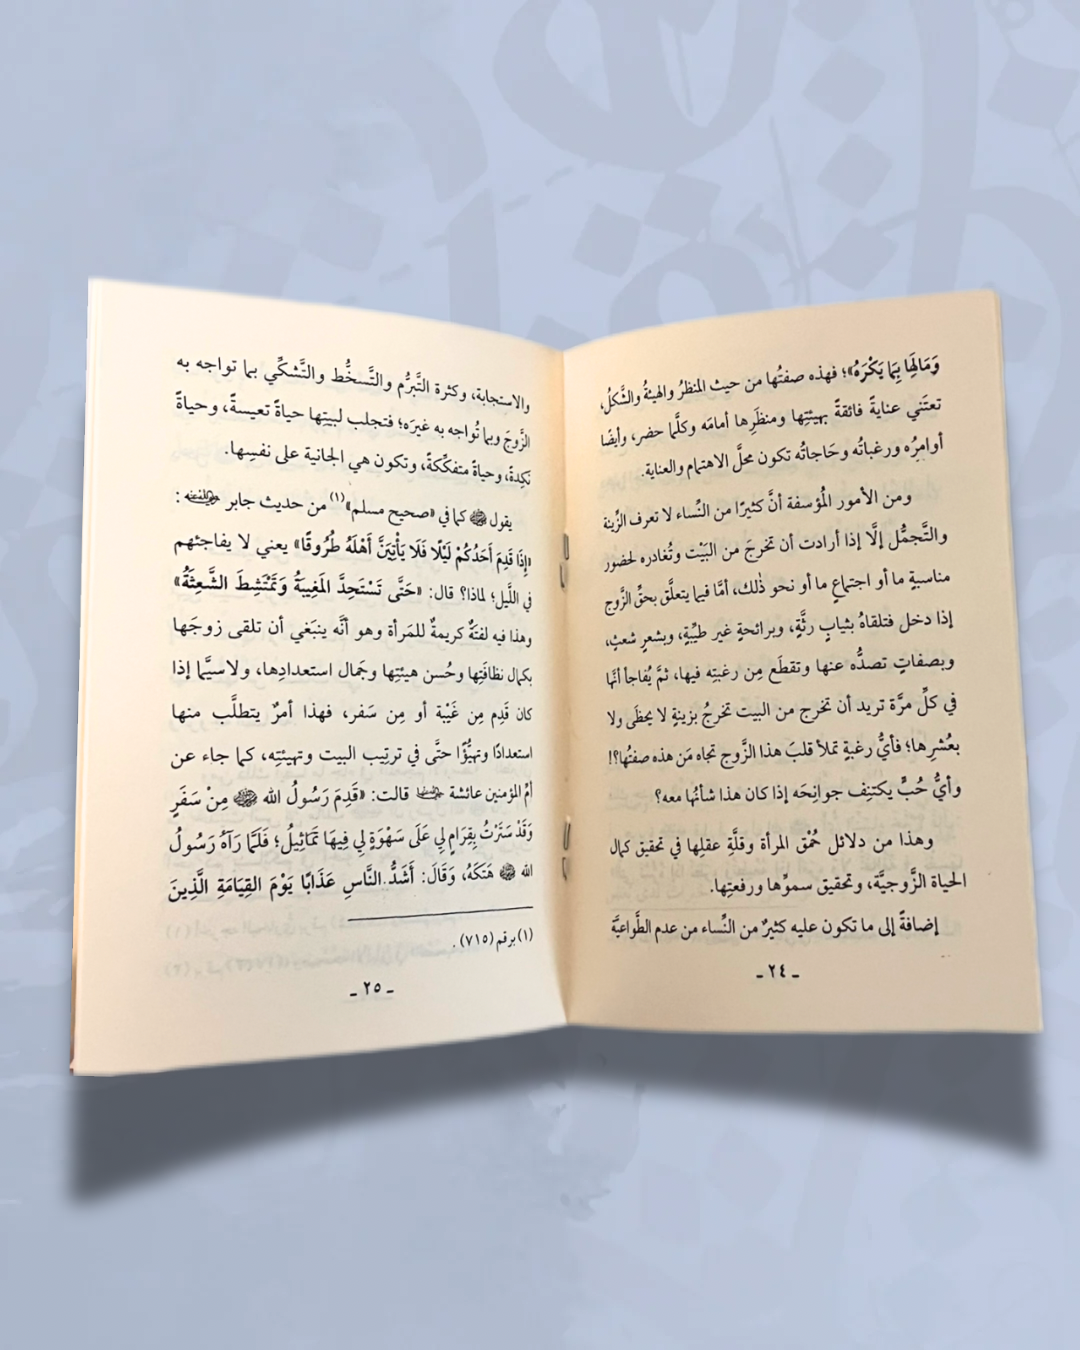 وَمَالِهَا بِمَا يَكْرَهُ»؛ فهذه صفتُها من حيث المنظرُ والهيئةُ والشَّكلُ،
تعتَني عنايةً فائقةً بهيئتِها ومنظَرِها أمامَه وكلَّما حضر، وأيضًا
أوامرُه ورغباتُه وحَاجاتُه تكون محلَّ الاهتمام والعناية.
ومن الأمور المُؤسفة أنَّ كثيرًا من النِّساء لا تعرف الزِّينة
والتَّجمُّل إلَّا إذا أرادت أن تخرجَ من البَيْت وتُغادره لحضور
مناسبةٍ ما أو اجتماعٍ ما أو نحو ذٰلك، أمَّا فيما يتعلَّق بحقِّ الزَّوج
إذا دخل فتلقاهُ بثيابٍ رثَّةٍ، وبرائحةٍ غير طيِّبةٍ، وبشعرٍ شعثٍ،
وبصفاتٍ تصدُّه عنها وتقطَع مِن رغبتِه فيها، ثمَّ يُفاجأ أنَّها
في كلِّ مرَّة تريد أن تخرج من البيت تخرجُ بزينةٍ لا يحظَى ولا
بعُشرِها؛ فأيُّ رغبةٍ تملأ قلبَ هذا الزَّوج تجاه مَن هذه صفتُها؟!
وأيُّ حُبٍّ يكتنِف جوانِحَه إذا كان هذا شأنُها معه؟
وهذا من دلائل حُمْق المرأة وقلَّةِ عقلِها في تحقيق كمال
الحياة الزَّوجيَّة، وتحقيق سموِّها ورفعتِها.
إضافةً إلى ما تكون عليه كثيرٌ من النِّساء من عدم الطَّواعيَّة
ـ ٢٤ ـ
والاستجابة، وكثرة التَّبرُّم والتَّسخُّط والتَّشكِّي بما تواجه به
الزَّوجَ وبما تُواجه به غيرَه؛ فتجلب لبيتِها حياةً تعيسةً، وحياةً
نَكِدةً، وحياةً متفكِّكةً، وتكون هي الجانية على نفسِها.
يقول ﷺ كما في «صحيح مسلم»(١) من حديث جابر رضي الله عنه :
«إِذَا قَدِمَ أَحَدُكُمْ لَيْلًا فَلَا يَأْتِيَنَّ أَهْلَهُ طُرُوقًا» يعني لا يفاجئهم
في اللَّيل؛ لماذا؟ قال: «حَتَّى تَسْتَحِدَّ المُغِيبَةُ وَتَمْتَشِطَ الشَّعِثَةُ»
وهذا فيه لفتَةٌ كريمةٌ للمَرأة وهو أنَّه ينبَغي أن تلقى زوجَها
بكمال نظافَتِها وحُسن هيئتِها وجَمال استعدادِها، ولاسيَّما إذا
كان قَدِم مِن غَيْبة أو مِن سَفر، فهذا أمرٌ يتطلَّب منها
استعدادًا وتهيُّؤًا حتَّى في ترتِيب البيت وتهيئتِه، كما جاء عن
أمِّ المؤمنين عائشة رضي الله عنها قالت: «قَدِمَ رَسُولُ الله ﷺ مِنْ سَفَرٍ
وَقَدْ سَتَرْتُ بِقِرَامٍ لِي عَلَى سَهْوَةٍ لِي فِيهَا تَمَاثِيلُ؛ فَلَمَّا رَآهُ رَسُولُ
الله ﷺ هَتَكَهُ، وَقَالَ: أَشَدُّ النَّاسِ عَذَابًا يَوْمَ القِيَامَةِ الَّذِينَ
(١) برقم (٧١٥) .
ـ ٢٥ ـ